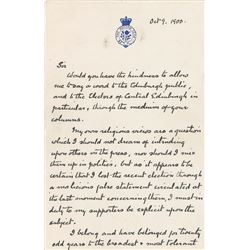 Oct 9. 1900.
Sir
Would you have the kindness to allow
me to say a word to the Edinburgh public,
and to the electors of Central Edinburgh in
particular, through the medium of your
columns.
My own religious views are a question
which I should not dream of intruding
upon others in the press, nor should I mix
them up in politics, but as it appears to be
certain that I lost the recent election through
a malicious false statement circulated at
the last moment concerning them, I must in
duty to my supporters be explicit upon the
subject.
I belong and have belonged for twenty
odd years to the broadest & most tolerant